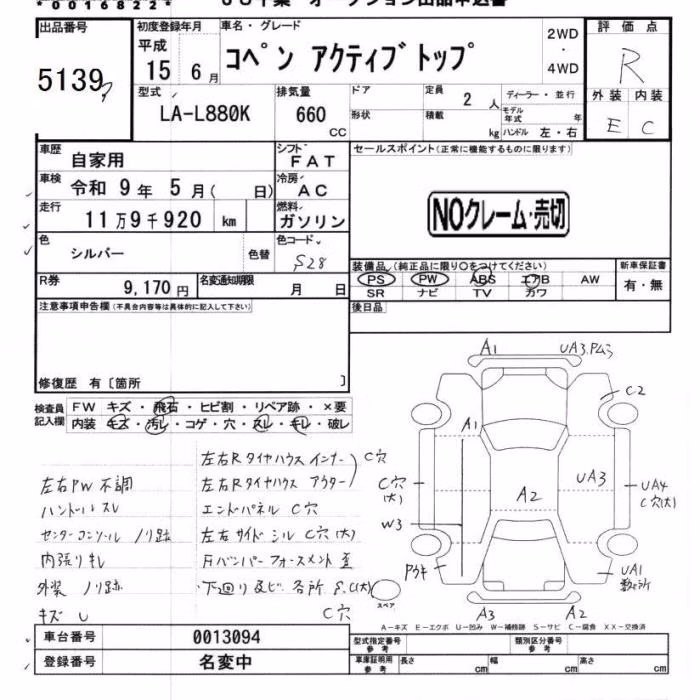 *00168221*
出品番号
5139
初度登録年月
平成
15 年 6 月
車名・グレード
コペン アクティブトップ
2WD
・
4WD
評価点
R
外装 内装
E C
型式
LA-L880K
排気量
660
CC
ドア
形状
定員
2 人
積載
kg
ディーラー・並行
モデル年式 年
ハンドル 左・右
車歴
自家用
シフト
FAT
セールスポイント(正常に機能するものに限ります)
車検
令和 9 年 5 月( 日)
冷房
AC
走行
11万9千920 km
燃料
ガソリン
NOクレーム・売切
色
シルバー
色替
色コード
S28
装備品(純正品に限り○をつけてください)
PS PW ABS エアB AW
SR ナビ TV カワ
新車保証書
有・無
R券
9,170円
名変通知期限
月 日
後日品
注意事項申告欄(不具合内容等は具体的に記入して下さい)
修復歴 有〔箇所 〕
検査員記入欄
FW キズ・飛石・ヒビ割・リペア跡・×要
内装 キズ・汚レ・コゲ・穴・スレ・キレ・破レ
左右PW不調
ハンドルスレ
センターコンソール ノリ跡
内張りキレ
外装 ノリ跡
キズ U
左右Rタイヤハウスインナー
左右Rタイヤハウス アウター
C穴
エンドパネル C穴
左右サイドシル C穴(大)
下回り及び各所 S.C(大)
C穴
A1
UA3
C2
A1
C穴
(大)
A2
UA3
UA4
C穴(大)
W3
UA1
A3
A2
スペア
A-キズ E-エクボ U-凹み W-補修跡 S-サビ C-腐食 XX-交換済
車台番号
0013094
登録番号
名変中
型式指定番号
参考
類別区分番号
参考
車庫証明用
参考
長さ cm
幅 cm
高さ cm